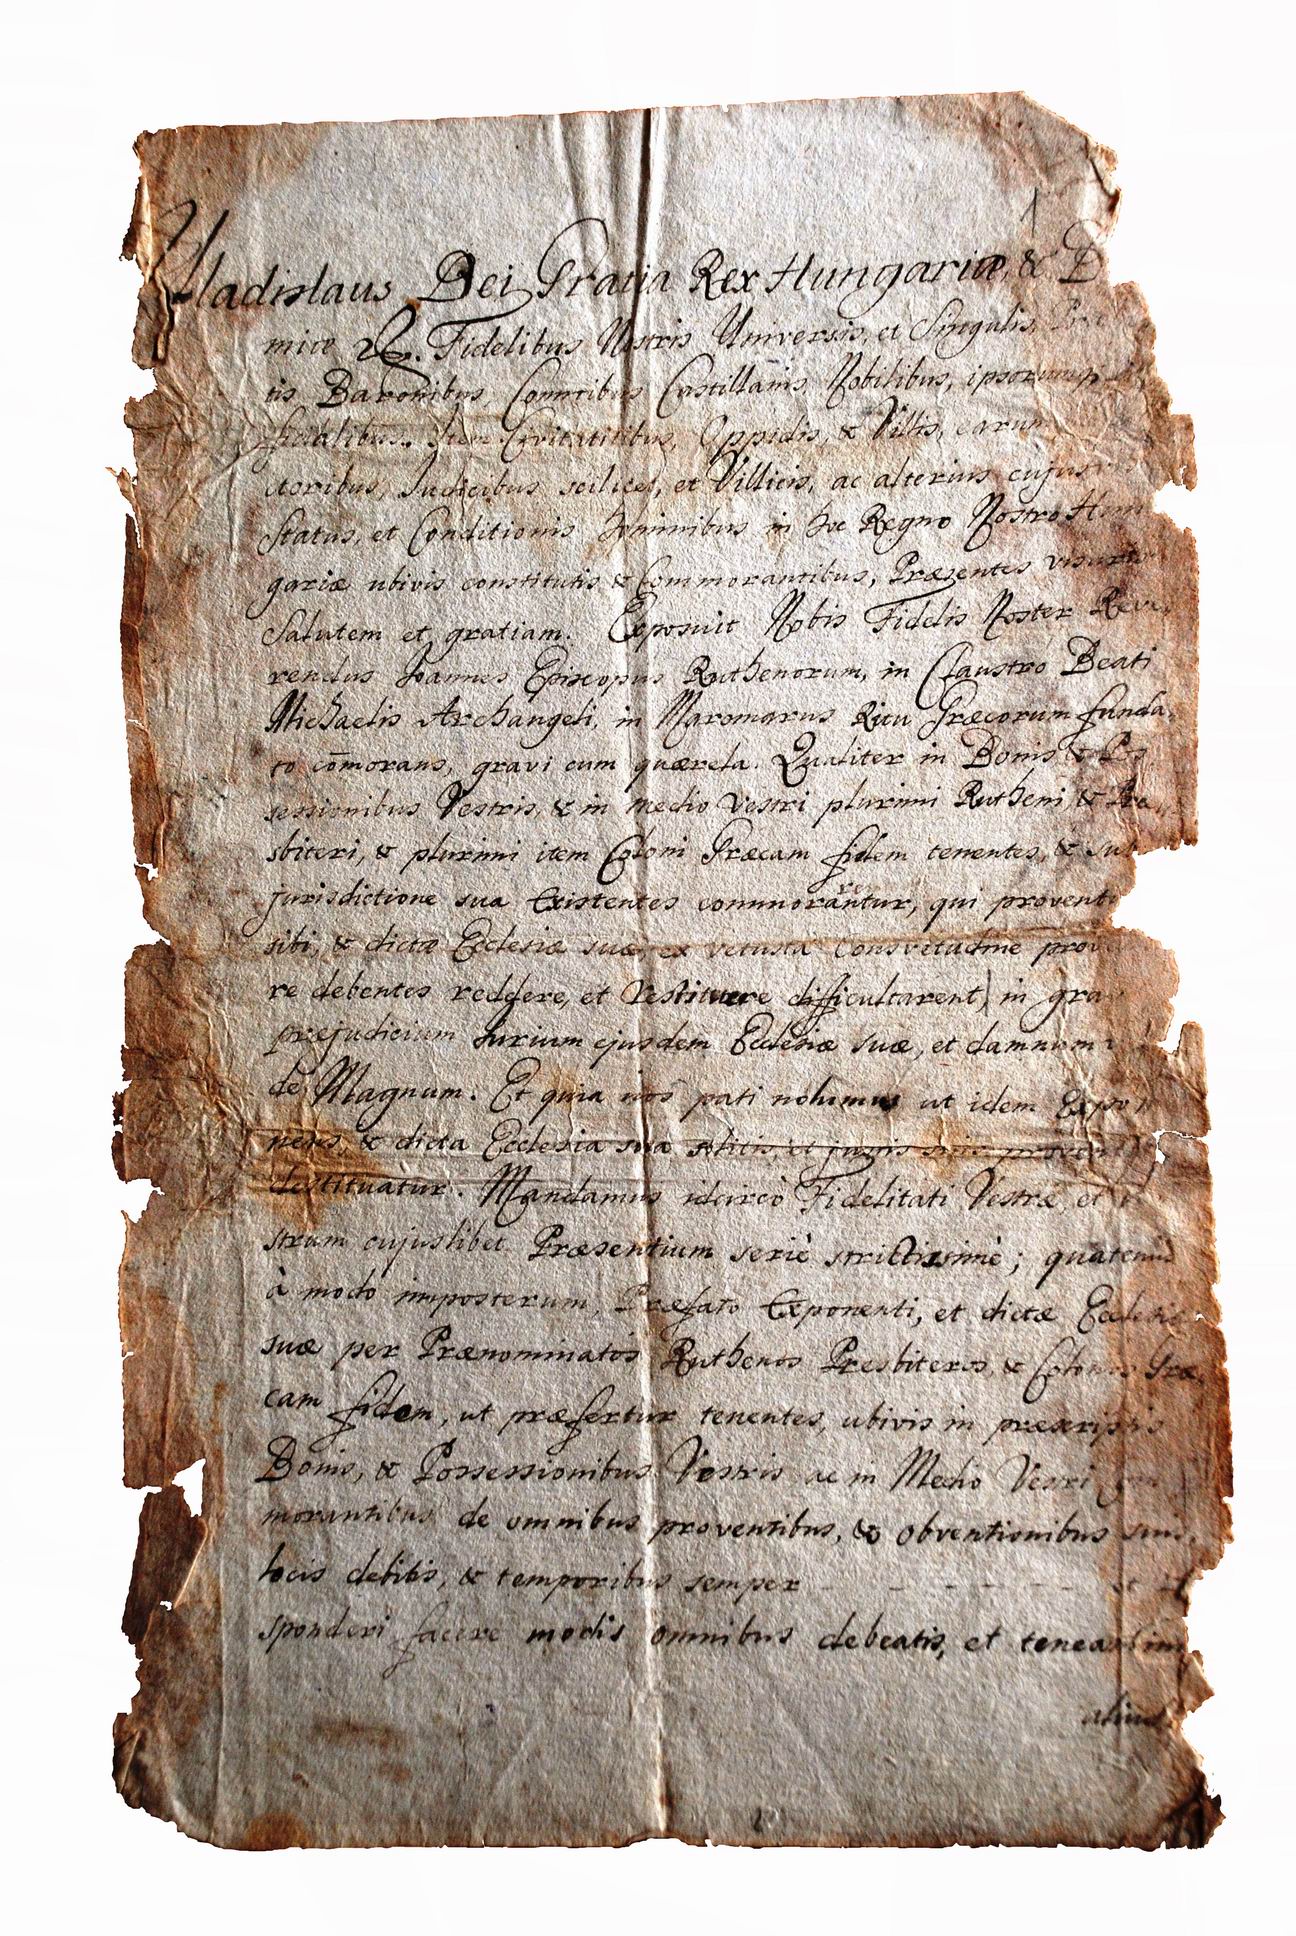 1
Uladislaus Dei Gratia Rex Hungariæ, & B
miæ &. Fidelibus Nostris Universis, et Singulis,
tis Baronibus, Comitibus Castillanis, Nobilibus, ipsorumq
ficialibus. Item Civitatibus, Oppidis, & Villis, earum
ctoribus, Judicibus scilicet, et Villicis, ac alterius cujus
Status, et Conditionis hominibus in hoc Regno Nostro Hun
gariæ ubivis constitutis & Commorantibus, Præsentes visuris
Salutem et gratiam. Exposuit Nobis Fidelis Noster Reve
rendus Joannes Episcopus Ruthenorum, in Claustro Beati
Michaelis Archangeli, in Maromarus Ritu Græcorum funda
to com̄orans, gravi cum quærela. Qualiter in Bonis & Pos
sessionibus Vestris, & in medio Vestri plurimi Rutheni, & Pre
sbiteri, & plurimi item Coloni Græcam fidem tenentes, & sub
jurisdictione sua Existentes commorantur, qui provent
sibi, & dictæ Ecclesiæ suæ, ex vetusta Consvetudine prov
re debentes reddere, et restituere difficultarent, in gra
præjudicium Jurium ejusdem Ecclesiæ suæ, et damnum
de Magnum. Et quia nos pati nolumus ut idem Expo
nens, & dicta Ecclesia sua solitis, et justis suis provent
destituatur. Mandamus idcircò Fidelitati Vestræ, et
strum cujuslibet Præsentium seriè strictissimè; quatenus
à modo imposterum, Præfato Exponenti, et dictæ Ecclesiæ
suæ per Prænominatos Ruthenos Presbiteros, & Colonos Græ
cam fidem, ut præfertur tenentes, ubivis in præscriptis
Bonis, & Possessionibus Vestris ac in Medio Vestri com
morantibus de omnibus proventibus, & obventionibus suis,
locis debitis, & temporibus semper - - - - - - et
sponderi facere modis omnibus debeatis, et teneamini
alius